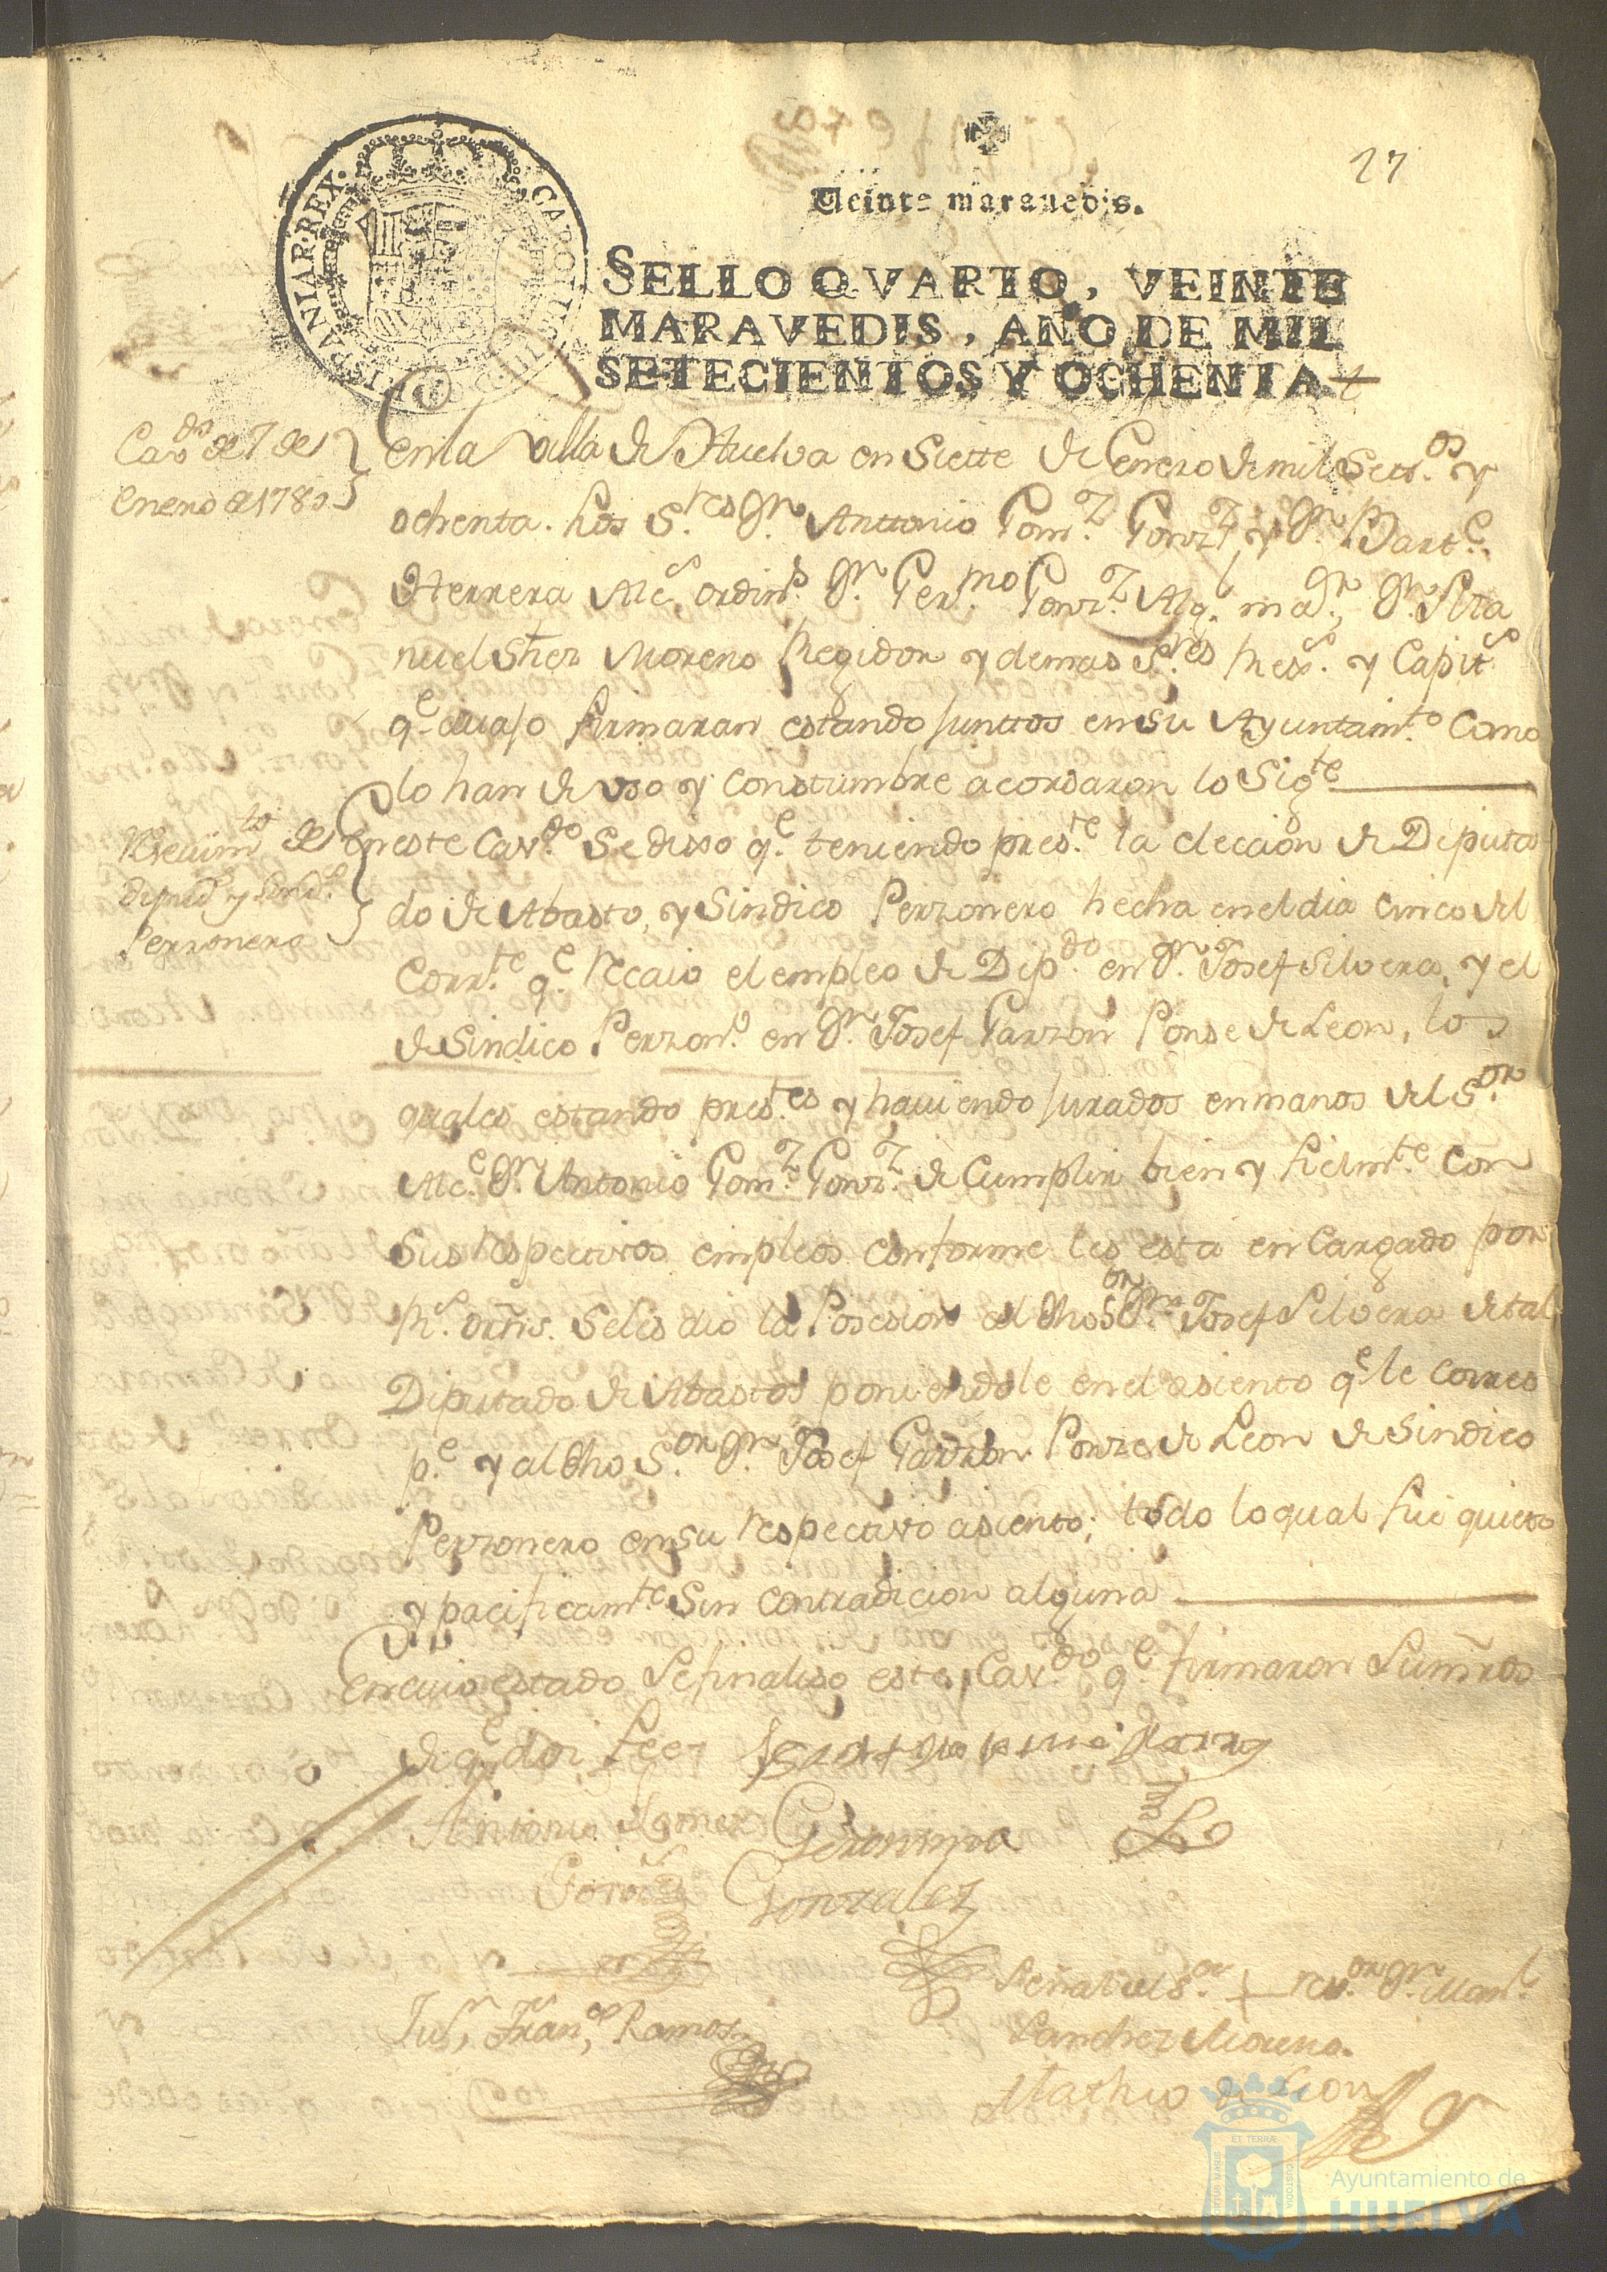 27
Veinte maravedis.
CAROLUS III D G HISPANIAR REX
SELLO QVARTO, VEINTE
MARAVEDIS, AÑO DE MIL
SETECIENTOS Y OCHENTA
Cavdo de 7 de
Enero de 1780
En la villa de Huelva en Siette de Enero de mil Setts.os y
ochenta. Los S.res Dn. Anttonio Gom.z Gonz.z y Dn. Bart.e
Herrera Alc.s ordin.s Dn. Ger.mo Gonz.z Alg.l ma.or, Dn. Ma
nuel Shez Moreno Regidor y demas S.res Rex.s y Capit.s
q.e avajo firmaran estando junttos en su Ayuntam.to Como
lo han de uso y Constumbre acordaron lo Sig.te
Reciuim.to de
diputd.o y Sind.o
Perzonero
En este Cav.do Se dixo q.e teniendo pres.te la eleccion de Diputa
do de Abasto, y Sindico Perzonero hecha en el dia cinco del
Corr.te q.e Recaio el empleo de Dip.do en Dn. Josef Silvera, y el
de Sindico Perzon.o en Dn. Josef Garzon Ponse de Leon, los
quales estando pres.tes y haviendo jurados en manos del S.or
Alc.e Dn. Antonio Gom.z Gonz.z de Cumplir bien y fielm.te Con
Sus Respectivos empleos conforme les esta en Cargado por
R.s orñs. Se les dio la Posesion al dho S.or Dn. Josef Silvera de tal
Diputado de Abastos poniendole en el asiento q.e le corres
p.e y al dho S.or Dn. Josef Garzon Ponze de Leon de Sindico
Perzonero en su Respectivo asiento; todo lo qual fue quieta
y pacificam.te Sin contradicion alguna
En cuio estado Se finaliso este Cav.do q.e firmaron Sus mrds
de q.e doi fee
Antonio Gomez
Geronimo
Gonzalez
Señal del S.or + rex.or Dn. Man.l
Sanchez Moreno.
Jun. Fran.co Ramos
Mathio de Leon
ET TERRÆ
CUSTODIA
Ayuntamiento de
HUELVA